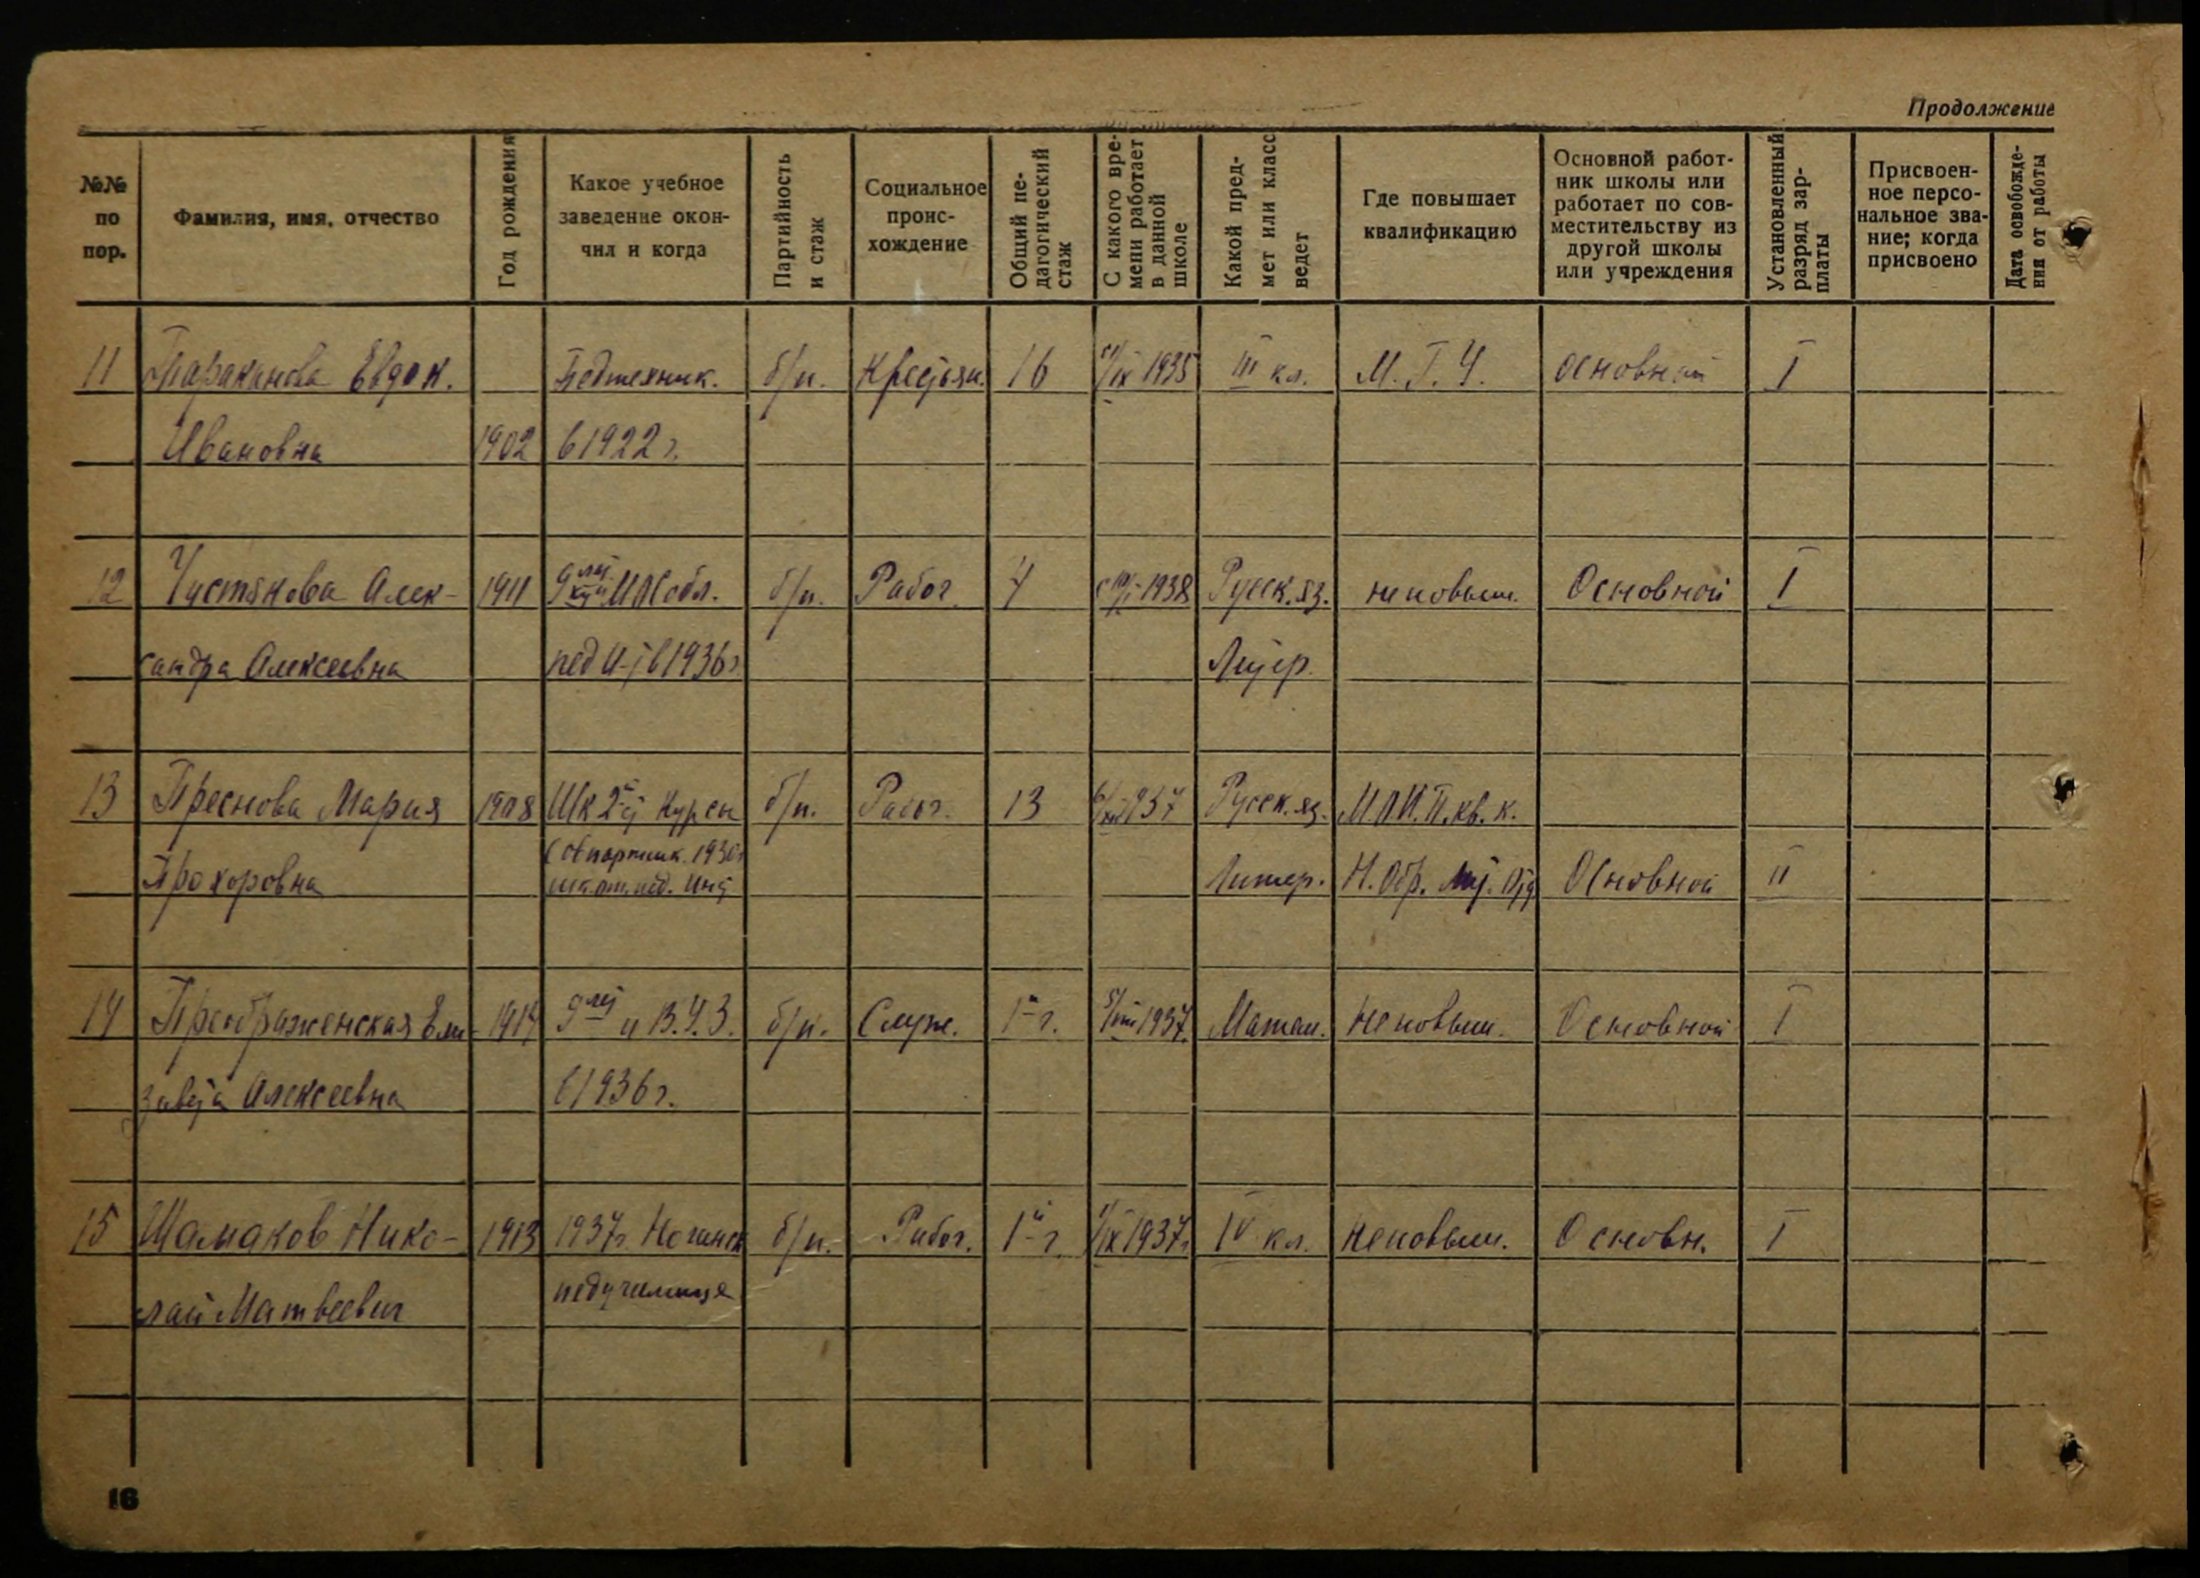 Продолжение
№№ по пор.
Фамилия, имя, отчество
Год рождения
Какое учебное заведение окончил и когда
Партийность и стаж
Социальное происхождение
Общий педагогический стаж
С какого времени работает в данной школе
Какой предмет или класс ведет
Где повышает квалификацию
Основной работник школы или работает по совместительству из другой школы или учреждения
Установленный разряд зарплаты
Присвоенное персональное звание; когда присвоено
Дата освобождения от работы
11 Тараканова Евдок. Педтехник. б/п. Крестьян. 16 1/IX 1935 III кл. М.Г.У. основной I
Ивановна 1902 в 1922 г.
12 Чистякова Алек- 1911 б/п. Рабоч. 1938 Русск. яз. не повыш. Основной I
сандра Алексеевна в 1936 г Литер.
13 Преснова Мария 1908 Курсы б/п. Рабоч. 13 1937 Русск. яз.
Прохоровна Литер. Основной II
14 Преображенская Ели- 9 лет и В.У.З. б/п. Служ. 1-й г. 1937. Матем. не повыш. Основной I
завета Алексеевна в 1936 г.
15 Шамаков Нико- 1913 1937 г. Ногинск б/п. Рабоч. 1-й г. 1/IX 1937 г IV кл. не повыш. Основн. I
лай Матвеевич педучилище
16